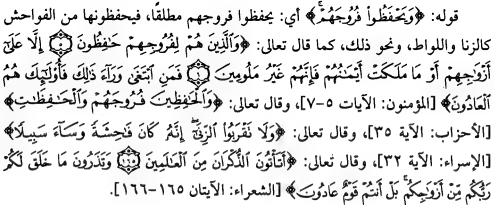 قوله: ﴿وَيَحْفَظُوا۟ فُرُوجَهُمْ﴾ أي: يحفظوا فروجهم مطلقًا، فيحفظونها من الفواحش
كالزنا واللواط، ونحو ذلك، كما قال تعالى: ﴿وَالَّذِينَ هُمْ لِفُرُوجِهِمْ حَافِظُونَ ۝ إِلَّا عَلَىٰٓ
أَزْوَاجِهِمْ أَوْ مَا مَلَكَتْ أَيْمَانُهُمْ فَإِنَّهُمْ غَيْرُ مَلُومِينَ ۝ فَمَنِ ابْتَغَىٰ وَرَآءَ ذَٰلِكَ فَأُو۟لَٰٓئِكَ هُمُ
الْعَادُونَ﴾ [المؤمنون: الآيات ٥-٧]، وقال تعالى: ﴿وَالْحَافِظِينَ فُرُوجَهُمْ وَالْحَافِظَاتِ﴾
[الأحزاب: الآية ٣٥]، وقال تعالى: ﴿وَلَا تَقْرَبُوا۟ الزِّنَىٰٓ إِنَّهُۥ كَانَ فَاحِشَةً وَسَآءَ سَبِيلًا﴾
[الإسراء: الآية ٣٢]، وقال تعالى: ﴿أَتَأْتُونَ الذُّكْرَانَ مِنَ الْعَالَمِينَ ۝ وَتَذَرُونَ مَا خَلَقَ لَكُمْ
رَبُّكُم مِّنْ أَزْوَاجِكُم بَلْ أَنتُمْ قَوْمٌ عَادُونَ﴾ [الشعراء: الآيتان ١٦٥-١٦٦].